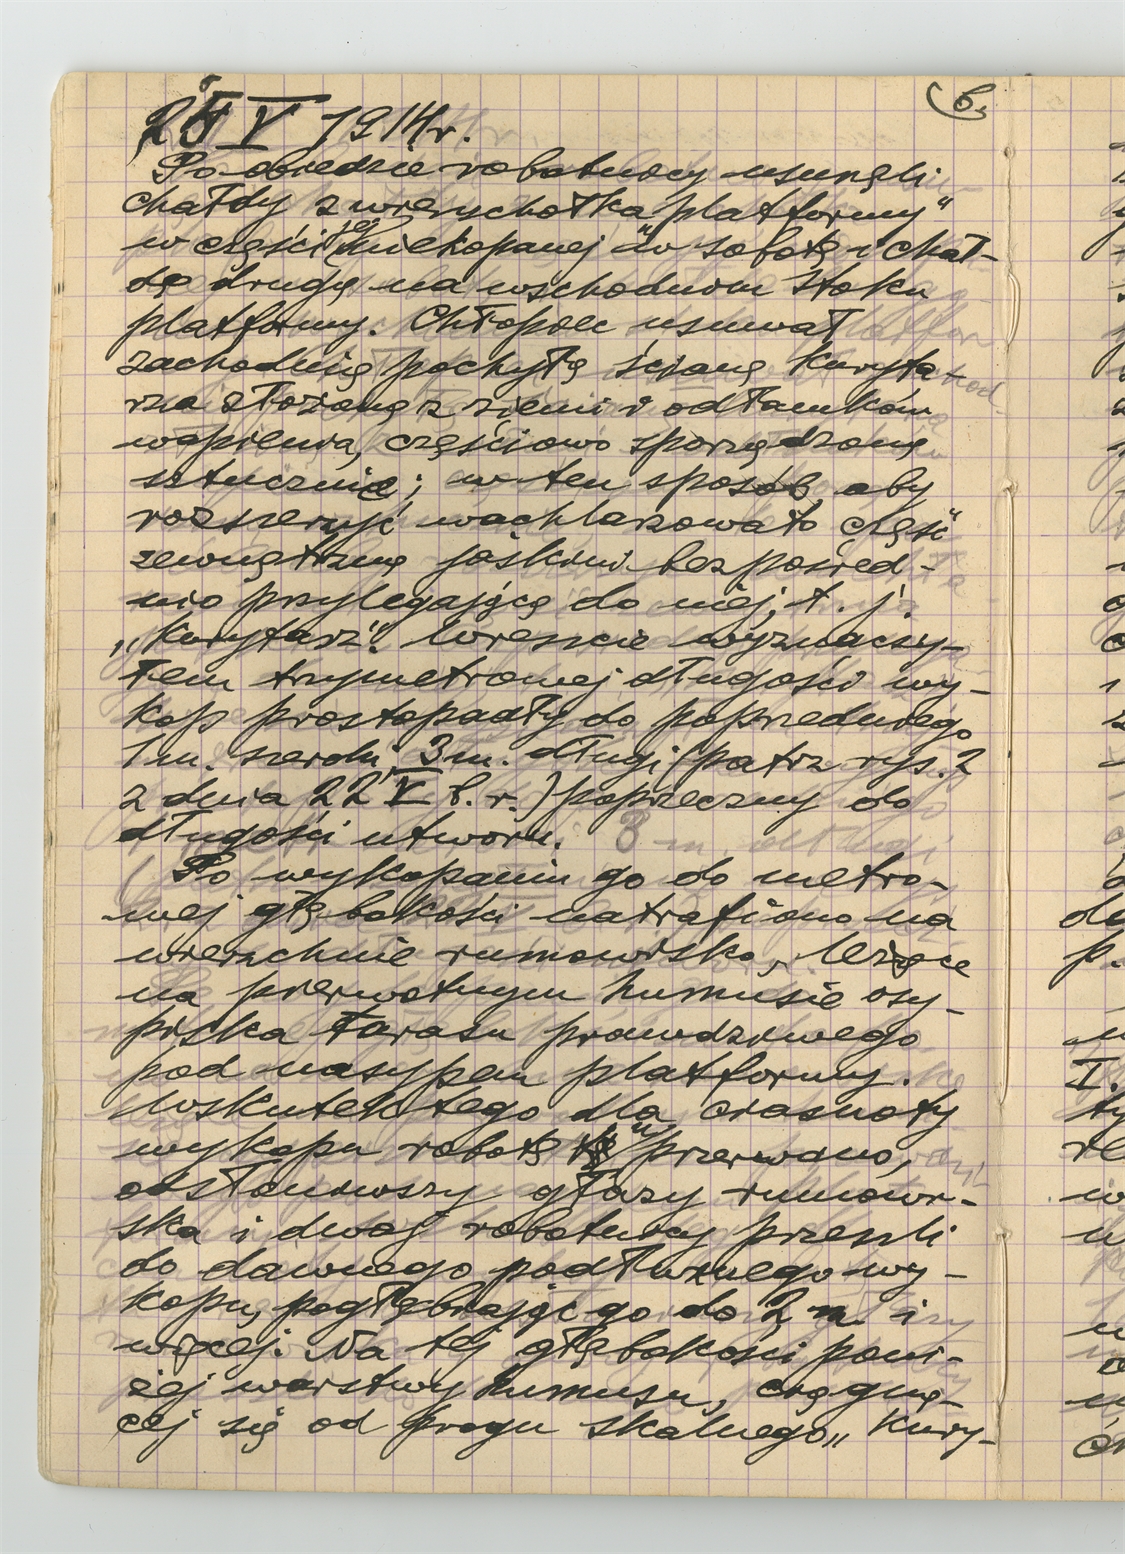 6.
25 V 1914 r.
Po obiedzie robotnicy usunęli
chałdy z wierzchołka platformy"
w części jej niekopanej w sobotę i chał-
dę drugą na wschodnim stoku
platformy. Chłopiec usuwał
zachodnią pochyłą ścianę Kuryta-
rza złożoną z ziemi i odłamków
wapienia, częściowo sporządzoną
sztucznie; w ten sposób, aby
rozszerzyć wachlarzowato część
zewnętrzną jaskini bezpośred-
nio przylegającą do niej, t. j.
„Kurytarz". Wreszcie wyznaczy-
łem trzymetrowej długości wy-
kop prostopadły do poprzedniego
1 m. szeroki, 3 m. długi (patrz rys. 2
z dnia 22 V b. r.) poprzeczny do
długości utworu.
Po wykopaniu go do metro-
wej głębokości natrafiono na
wierzchnie rumowisko, leżące
na pierwotnym humusie osy-
piska tarasu prawdziwego
pod nasypem platformy.
Wskutek tego dla ciasnoty
wykopu robotę przerwano,
odsłoniwszy głazy rumowi-
ska i dwaj robotnicy przeszli
do dawnego podłużnego wy-
kopu, pogłębiając go do 2 m. i
więcej. Na tej głębokości poni-
żej warstwy humusu, ciągną-
cej się od progu skalnego „Kury-